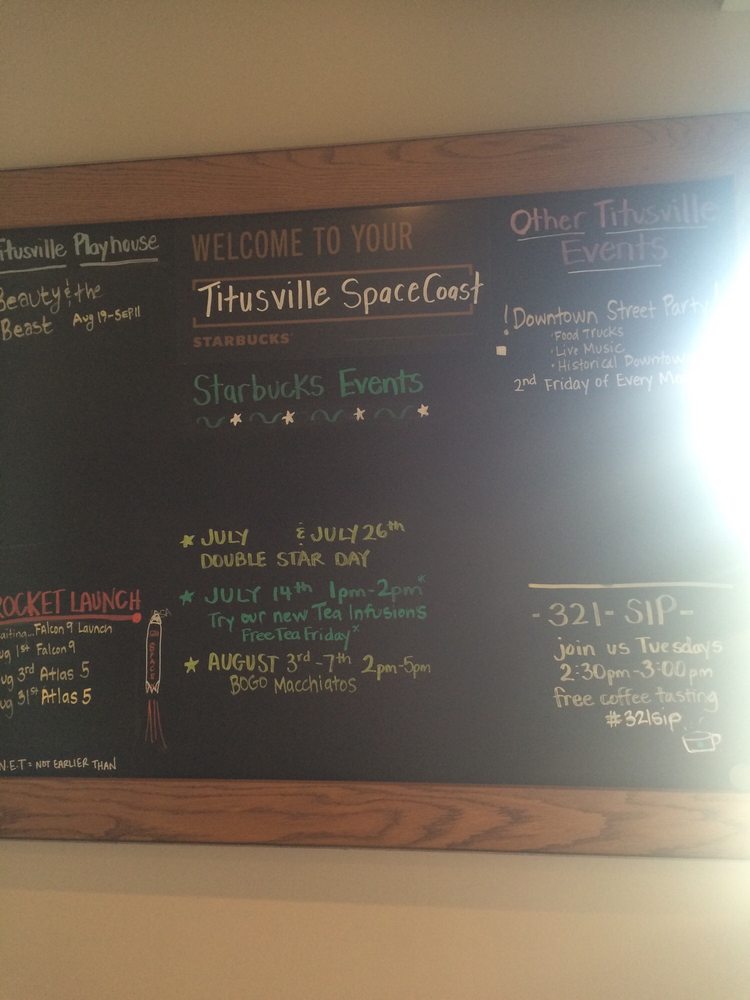 itusville Playhouse
Beauty & the
Beast Aug 19-SEP11
WELCOME TO YOUR
Titusville SpaceCoast
STARBUCKS
Starbucks Events
JULY & JULY 26th
DOUBLE STAR DAY
JULY 14th 1pm-2pm*
Try our new Tea Infusions
Free Tea Friday*
AUGUST 3rd-7th 2pm-5pm
BOGO Macchiatos
Other Titusville
Events
! Downtown Street Party!
· Food Trucks
· Live Music
· Historical Downtow
2nd Friday of Every Mo
ROCKET LAUNCH
aiting...Falcon 9 Launch
ug 1st Falcon 9
ug 3rd Atlas 5
ug 31st Atlas 5
N.E.T = NOT EARLIER THAN
-321-SIP-
join us Tuesdays
2:30pm-3:00pm
free coffee tasting
#321sip